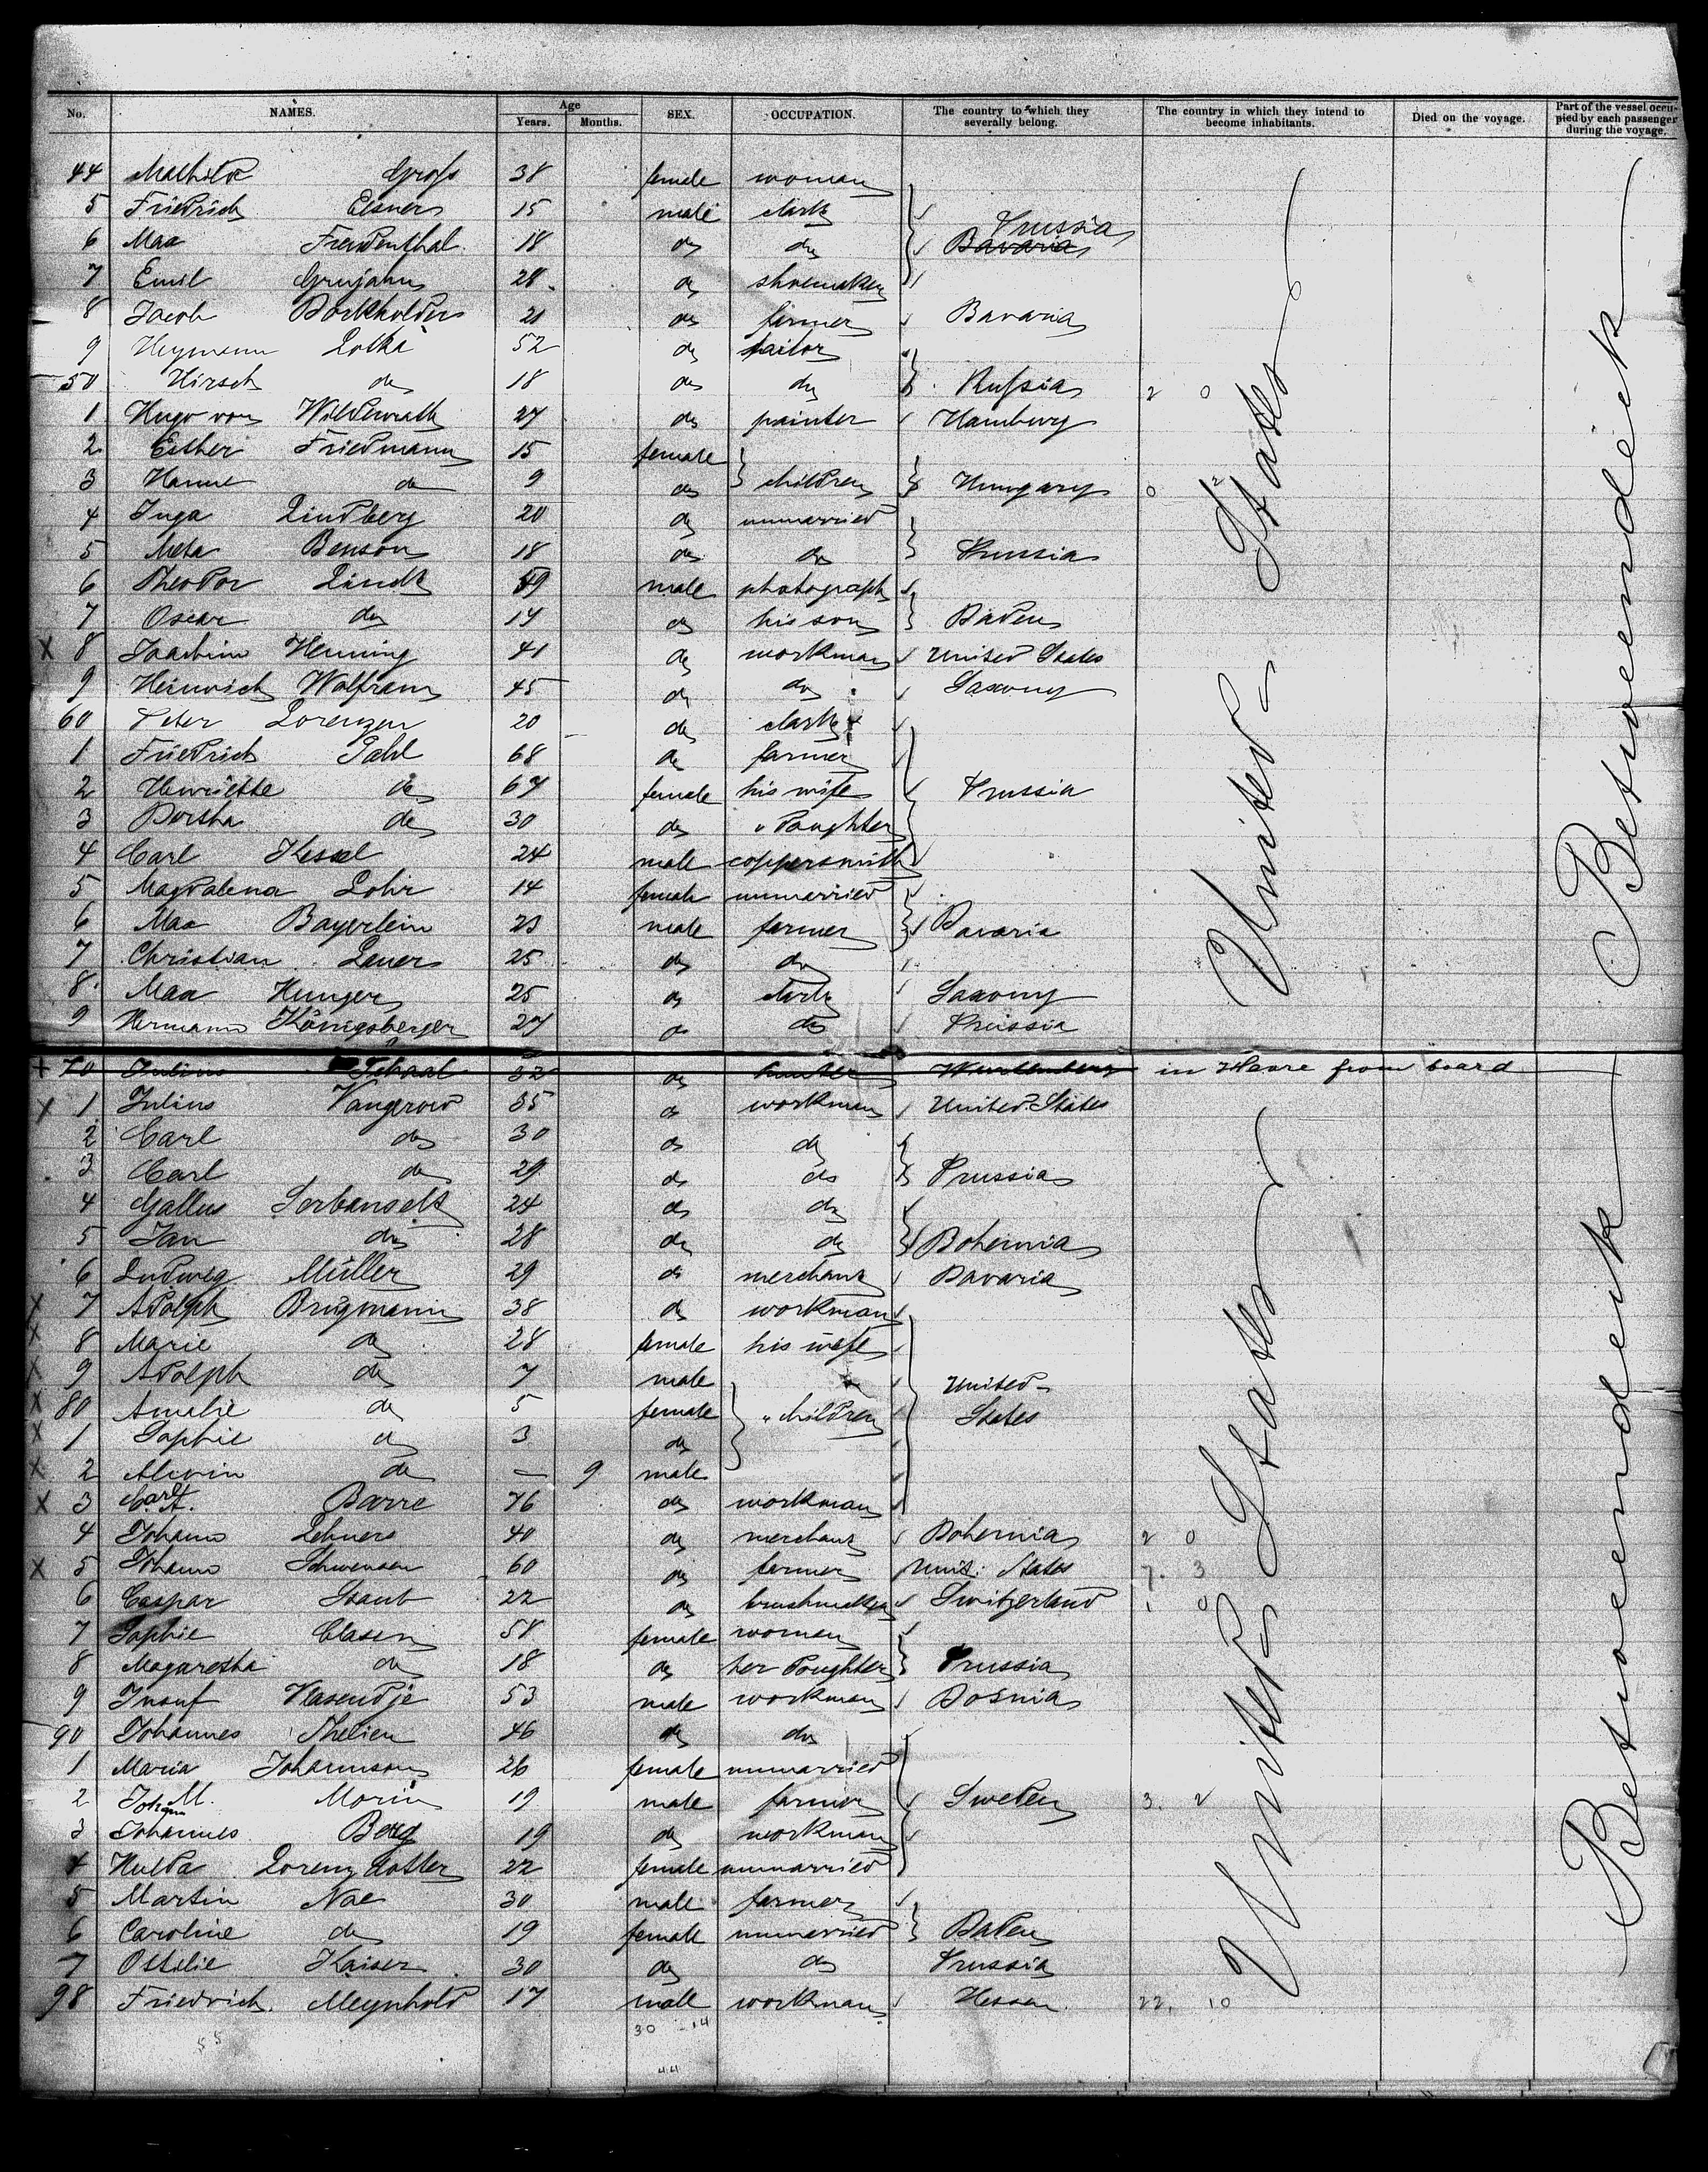 No. NAMES. Age Years. Months. SEX. OCCUPATION. The country to which they severally belong. The country in which they intend to become inhabitants. Died on the voyage. Part of the vessel occupied by each passenger during the voyage.
44 Mathilde Gross 38 female woman
5 Friedrich Elsner 15 male clark
Prussia
6 Max Freudenthal 18 do do Bavaria
7 Emil Grunjahn 28 do shoemaker
8 Jacob Borkholder 21 do farmer Bavaria
9 Heymann Lotka 52 do tailor
50 Hirsch do 18 do do Russia 2 0
1 Hugo von Wildenrath 27 do painter Hamburg
2 Esther Friedmann 15 female
3 Hanne do 9 do children Hungary 0 2
4 Inga Lindberg 20 do unmarried
5 Meta Benson 18 do do Prussia
6 Theodor Lindt 49 male photograph
7 Oscar do 14 do his son Baden
X 8 Joachim Henning 41 do workman United States
9 Heinrich Wolfram 45 do do Saxony
60 Peter Lorenzen 20 do clark
1 Friedrich Pahl 68 do farmer
2 Henriette do 67 female his wife Prussia
3 Bertha do 30 do " doughter
4 Carl Kessel 24 male coppersmith
5 Magdalena Lohr 14 female unmarried
6 Max Bayerlein 23 male farmer Bavaria
7 Christian Lauer 25 do do
8 Max Hunger 25 do clark Saxony
9 Hermann Königsberger 27 do do Prussia
United States
Betweendeck
X 70 Julius Schaal 32 do Wurttemberg in Havre from board
X 1 Julius Vangerow 35 do workman United States
2 Carl do 30 do do
3 Carl do 29 do do Prussia
4 Gallus 24 do do
5 Jan do 28 do do Bohemia
6 Ludweg Müller 29 do merchant Bavaria
X 7 Adolph Brügmann 38 do workman
X 8 Marie do 28 female his wife
X 9 Adolph do 7 male United
X 80 Amalie do 5 female " children States
X 1 Sophie do 3 do
X 2 Alwin do — 9 male
X 3 Carl A. Barre 76 do workman
4 Johann Lehners 40 do merchant Bohemia 2 0
X 5 Johann Schwensen 60 do farmer Unit. States 7. 3
6 Caspar Staub 22 do brushmaker Switzerland 1 0
7 Sophie Clasen 58 female women
8 Magaretha do 18 do her Doughter Prussia
9 Jusuf 53 male workman Bosnia
90 Johannes Thelien 46 do do
1 Maria Johannson 26 female unmarried
2 Johann M. Morin 19 male farmer Sweden 3. 2
3 Johannes Berg 19 do workman
4 Hulda 22 female unmarried
5 Martin Nae 30 male farmer
6 Caroline do 19 female unmarried Baden
7 Ottilie Kaiser 30 do do Prussia
98 Friedrich Meynhold 17 male workman Hessen 22. 10
United States
Betweendeck
30 - 14
55
44